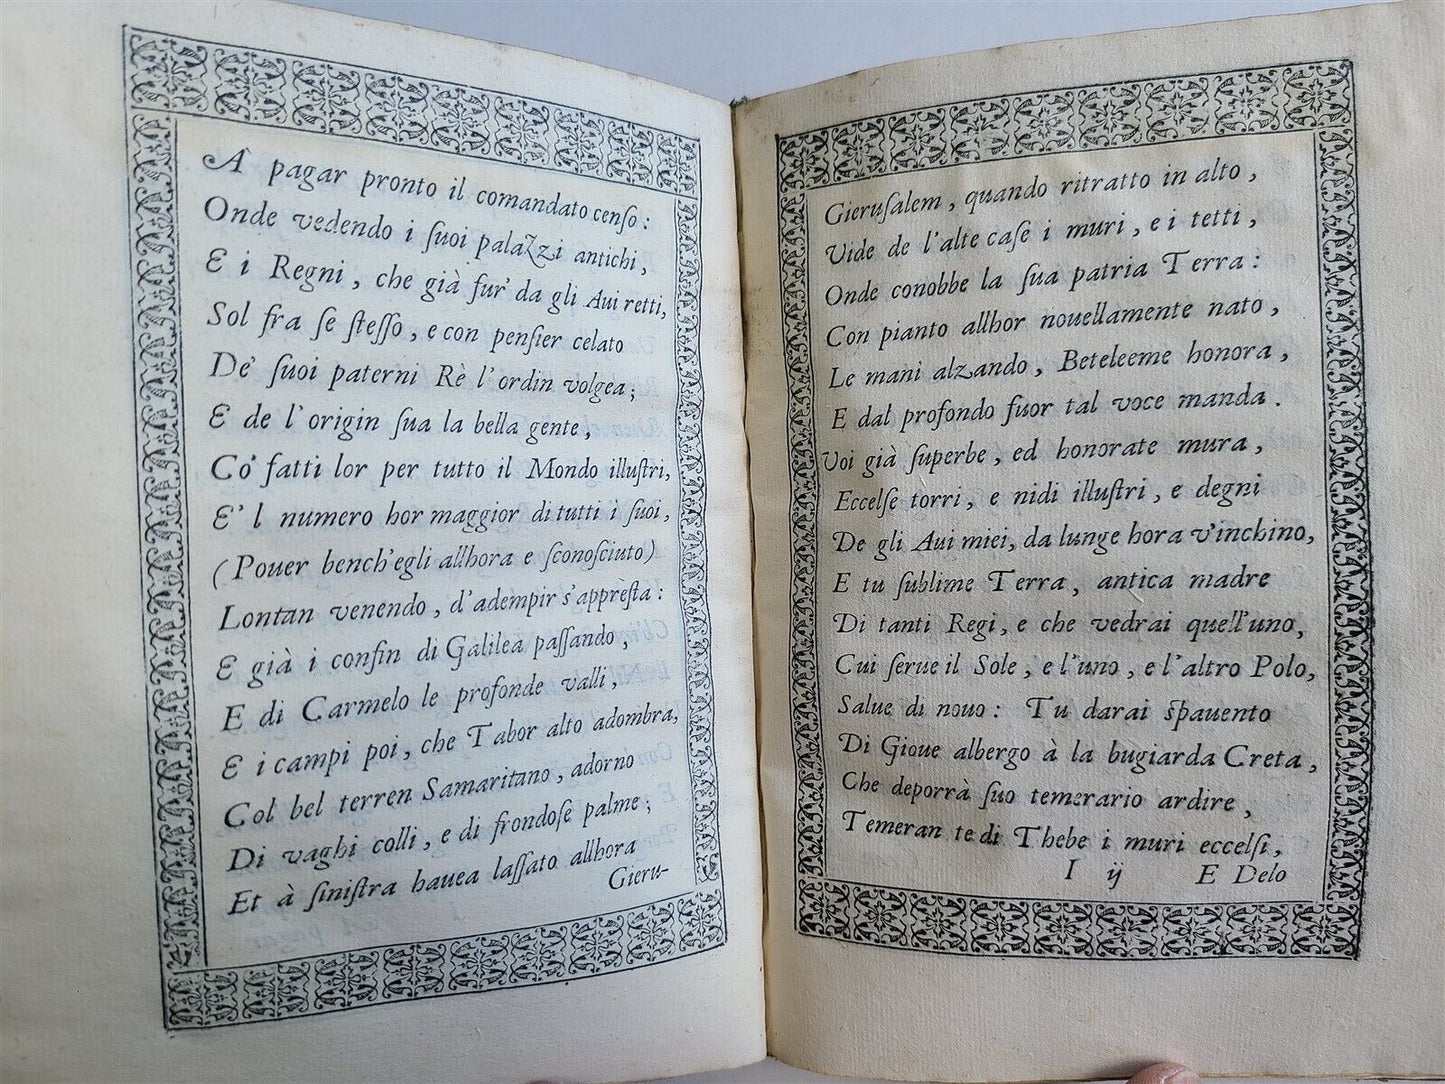 A pagar pronto il comandato censo:
Onde vedendo i suoi palazzi antichi,
E i Regni, che già fur' da gli Aui retti,
Sol fra se stesso, e con pensier celato
De' suoi paterni Rè l'ordin volgea;
E de l'origin sua la bella gente,
Co' fatti lor per tutto il Mondo illustri,
E'l numero hor maggior di tutti i suoi,
(Pouer bench'egli allhora e sconosciuto)
Lontan venendo, d'adempir s'appresta:
E già i confin di Galilea passando,
E di Carmelo le profonde valli,
E i campi poi, che Tabor alto adombra,
Col bel terren Samaritano, adorno
Di vaghi colli, e di frondose palme;
Et à sinistra hauea lassato allhora
Gieru-
Gierusalem, quando ritratto in alto,
Vide de l'alte case i muri, e i tetti,
Onde conobbe la sua patria Terra:
Con pianto allhor nouellamente nato,
Le mani alzando, Beteleeme honora,
E dal profondo fuor tal voce manda.
Voi già superbe, ed honorate mura,
Eccelse torri, e nidi illustri, e degni
De gli Aui miei, da lunge hora v'inchino,
E tu sublime Terra, antica madre
Di tanti Regi, e che vedrai quell'uno,
Cui serue il Sole, e l'uno, e l'altro Polo,
Salue di nouo: Tu darai spauento
Di Gioue albergo à la bugiarda Creta,
Che deporrà suo temerario ardire,
Temeran te di Thebe i muri eccelsi,
I ij E Delo